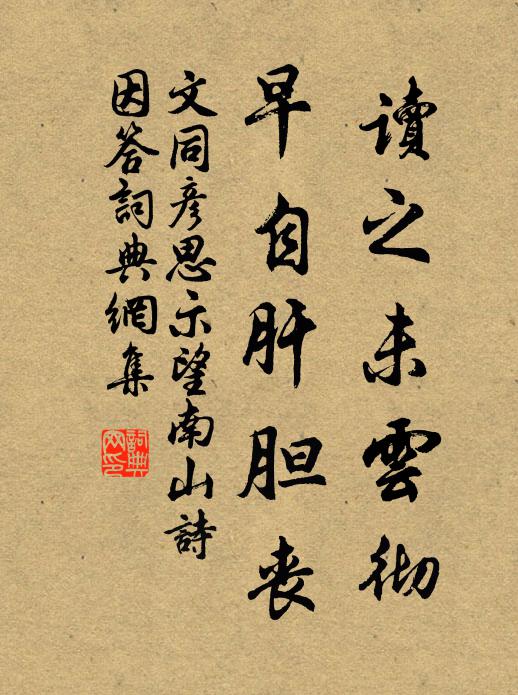 讀之未雲彻
早自肝胆喪
文同彦思示望南山詩
因答詞典網集
詞典网印